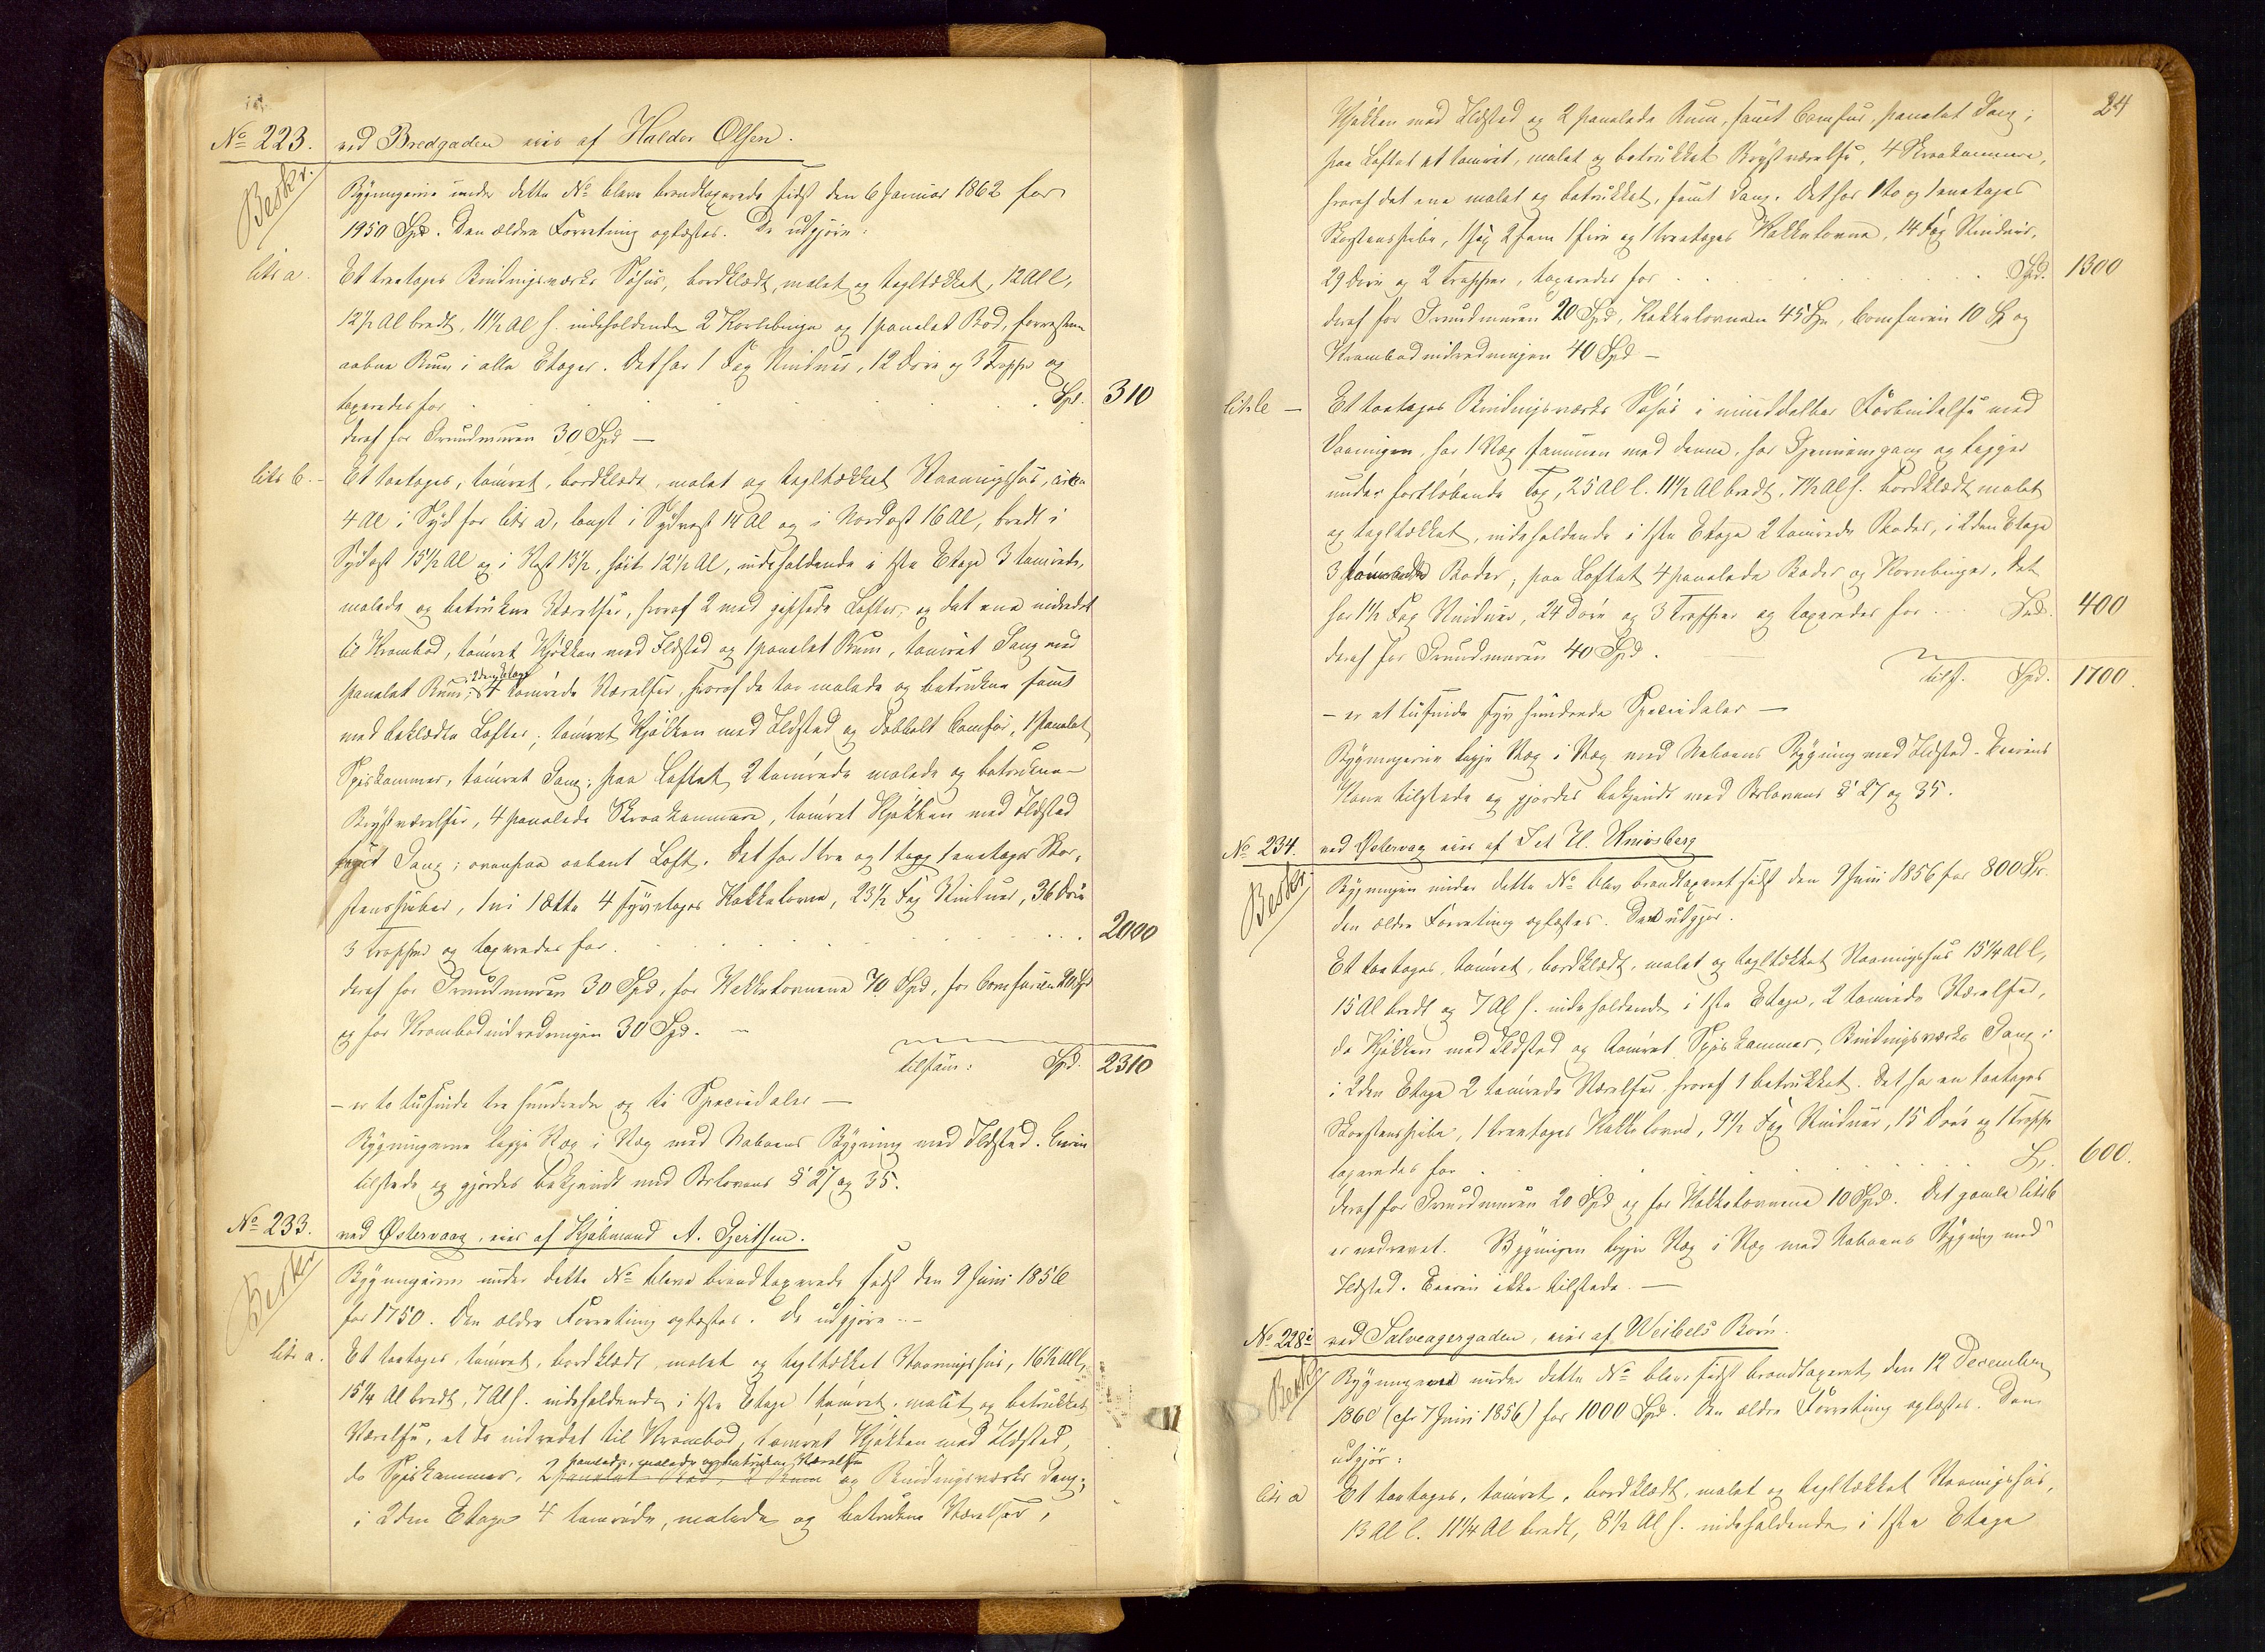 No 223. ved Bredgaden eies af Haldor Olsen.
Beskr. Bygningerne under dette No bleve brandtaxerede sidst den 6 Januar 1862 for
1950 Spd. Den ældre Forretning oplæstes. De udgjøre:
litr a. Et treetages Bindingsværks Søhus, bordklædt, malet og tagltækket, 12 Al l,
12½ Al bredt, 11½ Al h. indeholdende 2 Kornbinger og 1 panelet Bod, forresten
aabne Rum i alle Etager. Det har 1 Fag Vinduer, 12 Døre og 3 Trapper og
taxeredes for Spd. 310
deraf for Grundmuren 30 Spd —
litr b. - Et toetages, tømret, bordklædt, malet og tagltækket Vaaningshus, cirka
4 Al i Syd for litr a, langt i Sydvest 14 Al og i Nordost 16 Al, bredt i
Sydost 15½ Al og i Vest 13½, høit 12½ Al, indeholdende i 1ste Etage 3 tømrede,
malede og betrukne Værelser, hvoraf 2 med gipsede Lofter, og det ene indredet
til Krambod, tømret Kjøkken med Ildsted og 1 panelet Rum, tømret Gang med
panelet Rum; i 2den Etage 4 tømrede Værelser, hvoraf de tre malede og betrukne samt
med beklædte Lofter; tømret Kjøkken med Ildsted og dobbelt Comfur, 1 panelet
Spiskammer, tømret Gang; paa Loftet 2 tømrede malede og betrukne
Kvistværelser, 4 panelede Skraakammere, tømret Kjøkken med Ildsted
samt Gang; ovenpaa aabent Loft. Det har 1 tre og 1 to og 1 eenetages Skor-
stenspiber, 1 ni 1 otte 4 fyretages Kakkelovne, 23½ Fag Vinduer, 36 Døre
3 Trapper og taxeredes for. 2000
deraf for Grundmuren 30 Spd, for Kakkelovnene 70 Spd, for Comfuren 20 Spd
og for Krambodindredningen 30 Spd. —
tilsam: Spd. 2310
— er to tusinde tre hundrede og ti Speciedaler —
Bygningerne ligge Væg i Væg med Naboens Bygning med Ildsted. Eieren
tilstede og gjordes bekjendt med Brlovens § 27 og 35.
No 233. ved Østervaag, eies af Kjøbmand A. Gjertsen.
Beskr. Bygningerne under dette No bleve brandtaxerede sidst den 9 Juni 1856
for 1750. Den ældre Forretning oplæstes. De udgjøre: -
litr a. Et toetages, tømret, bordklædt, malet og tagltækket Vaaningshus, 16½ Al l,
15¼ Al bredt, 7 Al h. indeholdende i 1ste Etage 1 tømret, malet og betrukket
Værelse, et do indredet til Krambod, tømret Kjøkken med Ildsted,
do Spiskammer, 2 panelede, malede og betrukne Værelser og Bindingsværks Gang;
i 2den Etage 4 tømrede, malede og betrukne Værelser,
24
Kjøkken med Ildsted og 2 panelede Rum, samt Comfur, panelet Gang;
paa Loftet et tømret, malet og betrukket Kvistværelse, 4 Skraakammere,
hvoraf det ene malet og betrukket, samt Gang. Det har 1 to og 1 eenetages
Skorstenspibe, 1 sex 2 fem 1 fire og 1 treetages Kakkelovne, 14 Fag Vinduer,
29 Døre og 2 Trapper, taxeredes for Spd. 1300
deraf for Grundmuren 20 Spd, Kakkelovnene 45 Sp, Comfuren 10 Sp og
Krambodindredningen 40 Spd —
litr b — Et toetages Bindingsværks Søhus i umiddelbar Forbindelse med
Vaaningen, har 1 Væg sammen med denne, har Gjennemgang og ligger
under fortløbende Tag, 25 Al l. 11½ Al bredt, 7½ Al h. bordklædt malet
og tagltækket, indeholdende i 1ste Etage 2 tømrede Boder, i 2den Etage
3 Boder, paa Loftet 4 panelede Boder og Kornbinger. Det
har 1½ Fag Vinduer, 24 Døre og 3 Trapper og taxeredes for Spd. 400
deraf for Grundmuren 40 Spd.
tils. Spd. 1700.
— er et tusinde syv hundrede Speciedaler —
Bygningerne ligge Væg i Væg med Naboens Bygning med Ildsted. Eierens
Kone tilstede og gjordes bekjendt med Brlovens § 27 og 35.
No 234. ved Østervaag eies af
Beskr. Bygningen under dette No blev brandtaxeret sidst den 9 Juni 1856 for 800 Sp.
den ældre Forretning oplæstes. Den udgjør.
Et toetages, tømret, bordklædt, malet og tagltækket Vaaningshus 15¼ Al l,
15 Al bredt og 7 Al h. indeholdende i 1ste Etage, 2 tømrede Værelser,
do Kjøkken med Ildsted og tømret Spiskammer, Bindingsværks Gang;
i 2den Etage 2 tømrede Værelser hvoraf 1 betrukket. Det har en toetages
Skorstenspibe, 1 treetages Kakkelovn, 9½ Fag Vinduer, 15 Døre og 1 Trappe
taxeredes for Sp. 600.
deraf for Grundmuren 20 Spd og for Kakkelovnene 10 Spd. Det gamle litr b
er nedrevet. Bygningen ligger Væg i Væg med Naboens Bygning med
Ildsted. Eieren ikke tilstede. —
No 228i ved Salveagergaden, eies af Weibels Børn.
Beskr. Bygningen under dette No blev sidst brandtaxeret den 12 December
1860 (cfr 7 Juni 1856) for 1000 Spd. Den ældre Forretning oplæstes. Den
udgjør:
litr a Et toetages, tømret, bordklædt, malet og tagltækket Vaaningshus,
13 Al l. 11¼ Al bredt, 8½ Al h. indeholdende i 1ste Etage